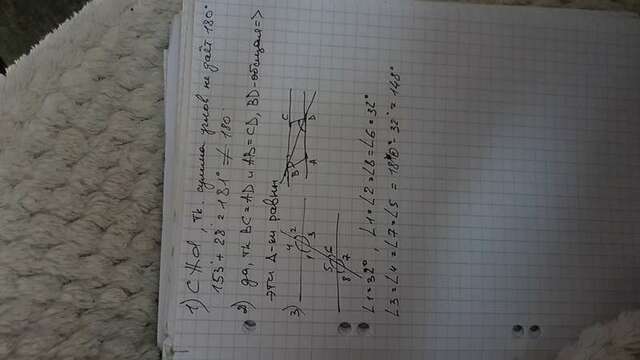 1) c ∦ d, т.к. сумма углов не даёт 180°
153° + 28 = 181° ≠ 180
2) да, тк BC = AD и AB = CD, BD - общая =>
=> эти Δ-ки равны
B C
A D
3)
4 2
1 3
5 6
8 7
∠1 = 32°, ∠1 = ∠2 = ∠8 = ∠6 = 32°
∠3 = ∠4 = ∠7 = ∠5 = 180° - 32° = 148°